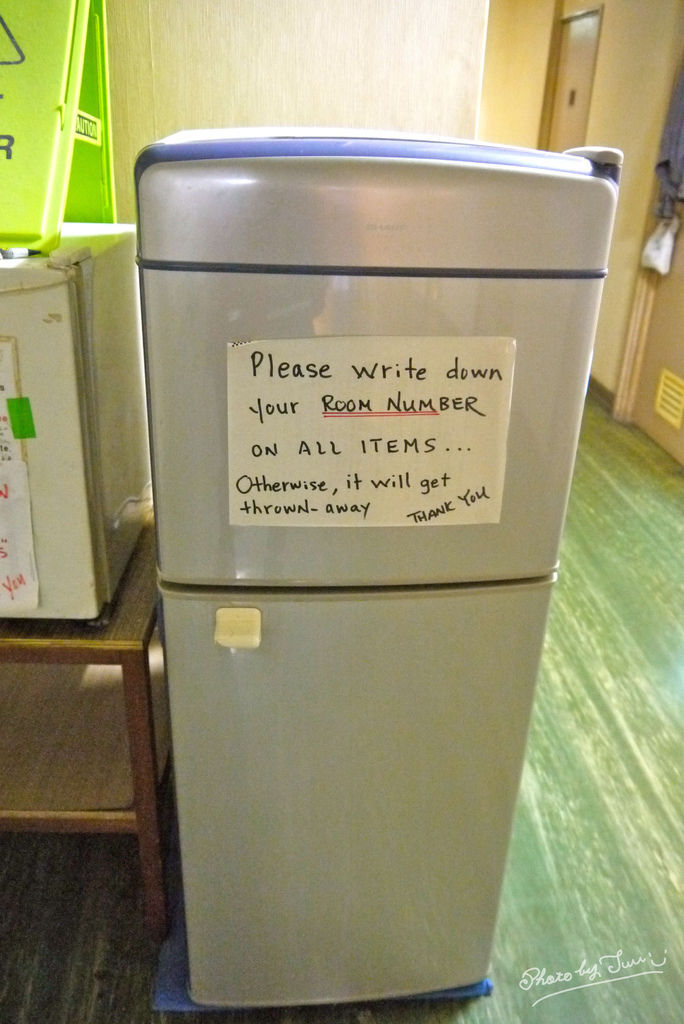 R
AUTION
SHARP
Please write down
your ROOM NUMBER
ON ALL ITEMS...
Otherwise, it will get
thrown-away
THANK YOU
You
Photo by